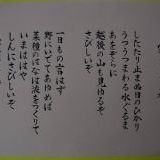 したたり止まぬ日のひかり
うつうつまわる水ぐるま
あをぞらに
越後の山も見ゆるぞ
さびしいぞ
一日もの言はず
野にいでてあゆめば
菜種のはなは波をつくりて
いまははや
しんにさびしいぞ